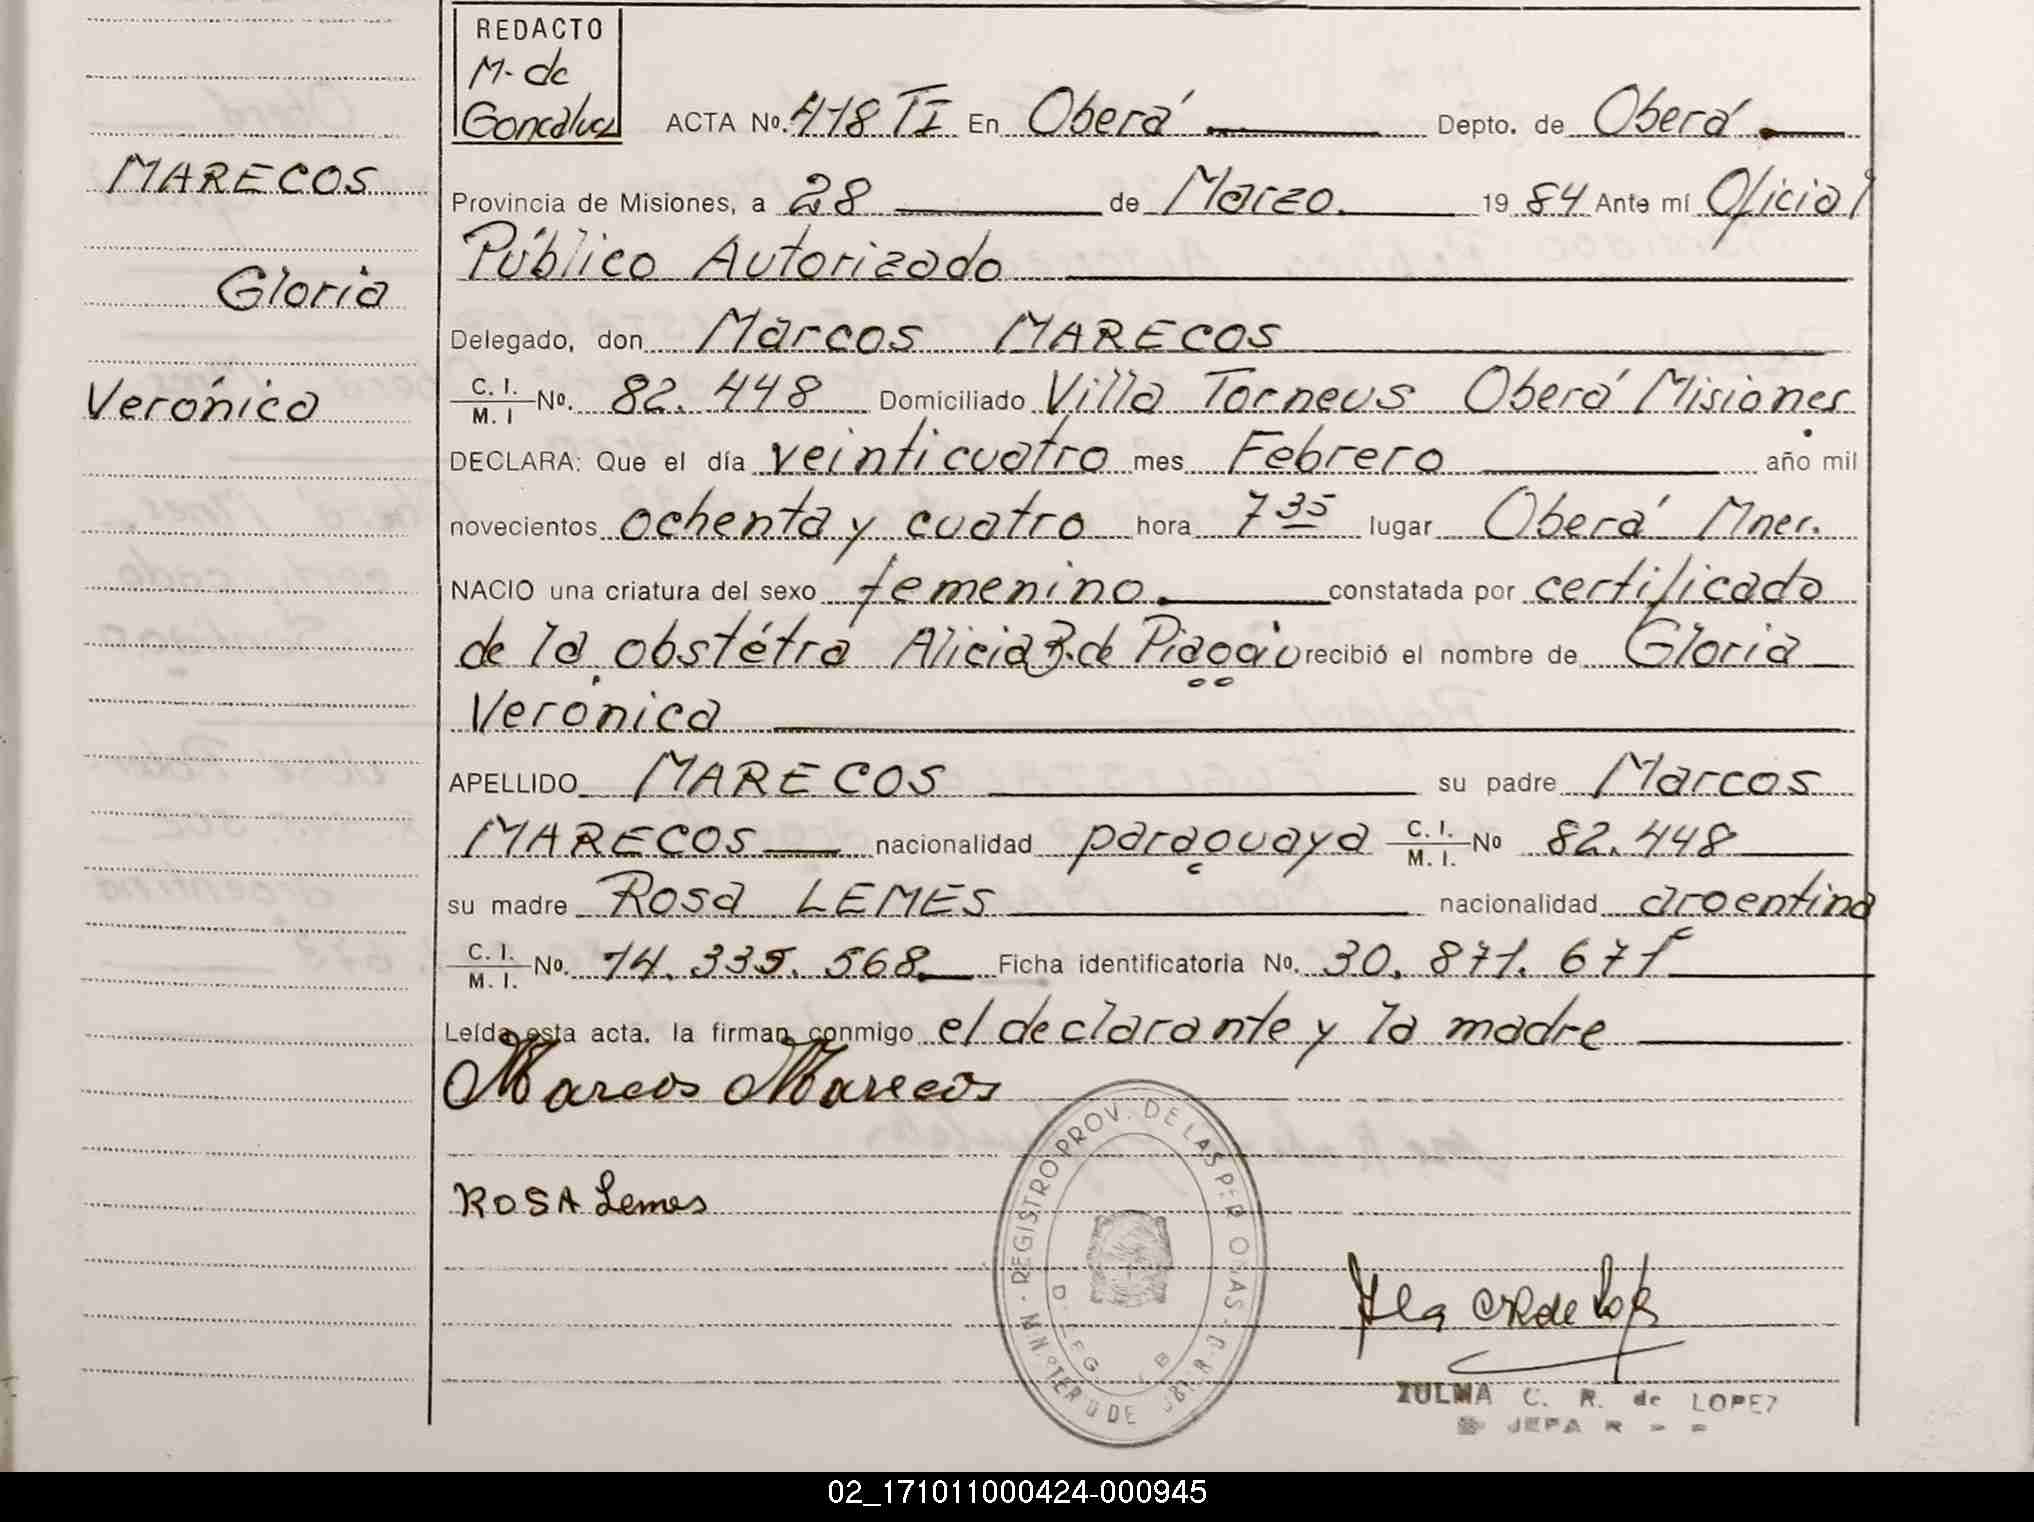 REDACTO
M. de
Goncalvez
ACTA No. 418 TI En Oberá Depto. de Oberá
MARECOS
Provincia de Misiones, a 28 de Marzo. 19 84 Ante mí Oficial
Público Autorizado
Gloria
Delegado, don Marcos MARECOS
Verónica
C. I. / M. I No. 82.448 Domiciliado Villa Torneus Oberá Misiones
DECLARA: Que el día veinticuatro mes Febrero año mil
novecientos ochenta y cuatro hora 7 35 lugar Oberá Mnes.
NACIO una criatura del sexo femenino. constatada por certificado
de la obstétra Alicia B. de Piaggio recibió el nombre de Gloria
Verónica
APELLIDO MARECOS su padre Marcos
MARECOS nacionalidad paraguaya C. I. / M. I. No 82.448
su madre Rosa LEMES nacionalidad argentina
C. I. / M. I. No. 14.335.568 Ficha identificatoria No. 30.871.671
Leída esta acta, la firman conmigo el declarante y la madre
Marcos Marecos
ROSA Lemes
REGISTRO PROV. DE LAS PERSONAS
ZULMA C. R. de LOPEZ
02_171011000424-000945